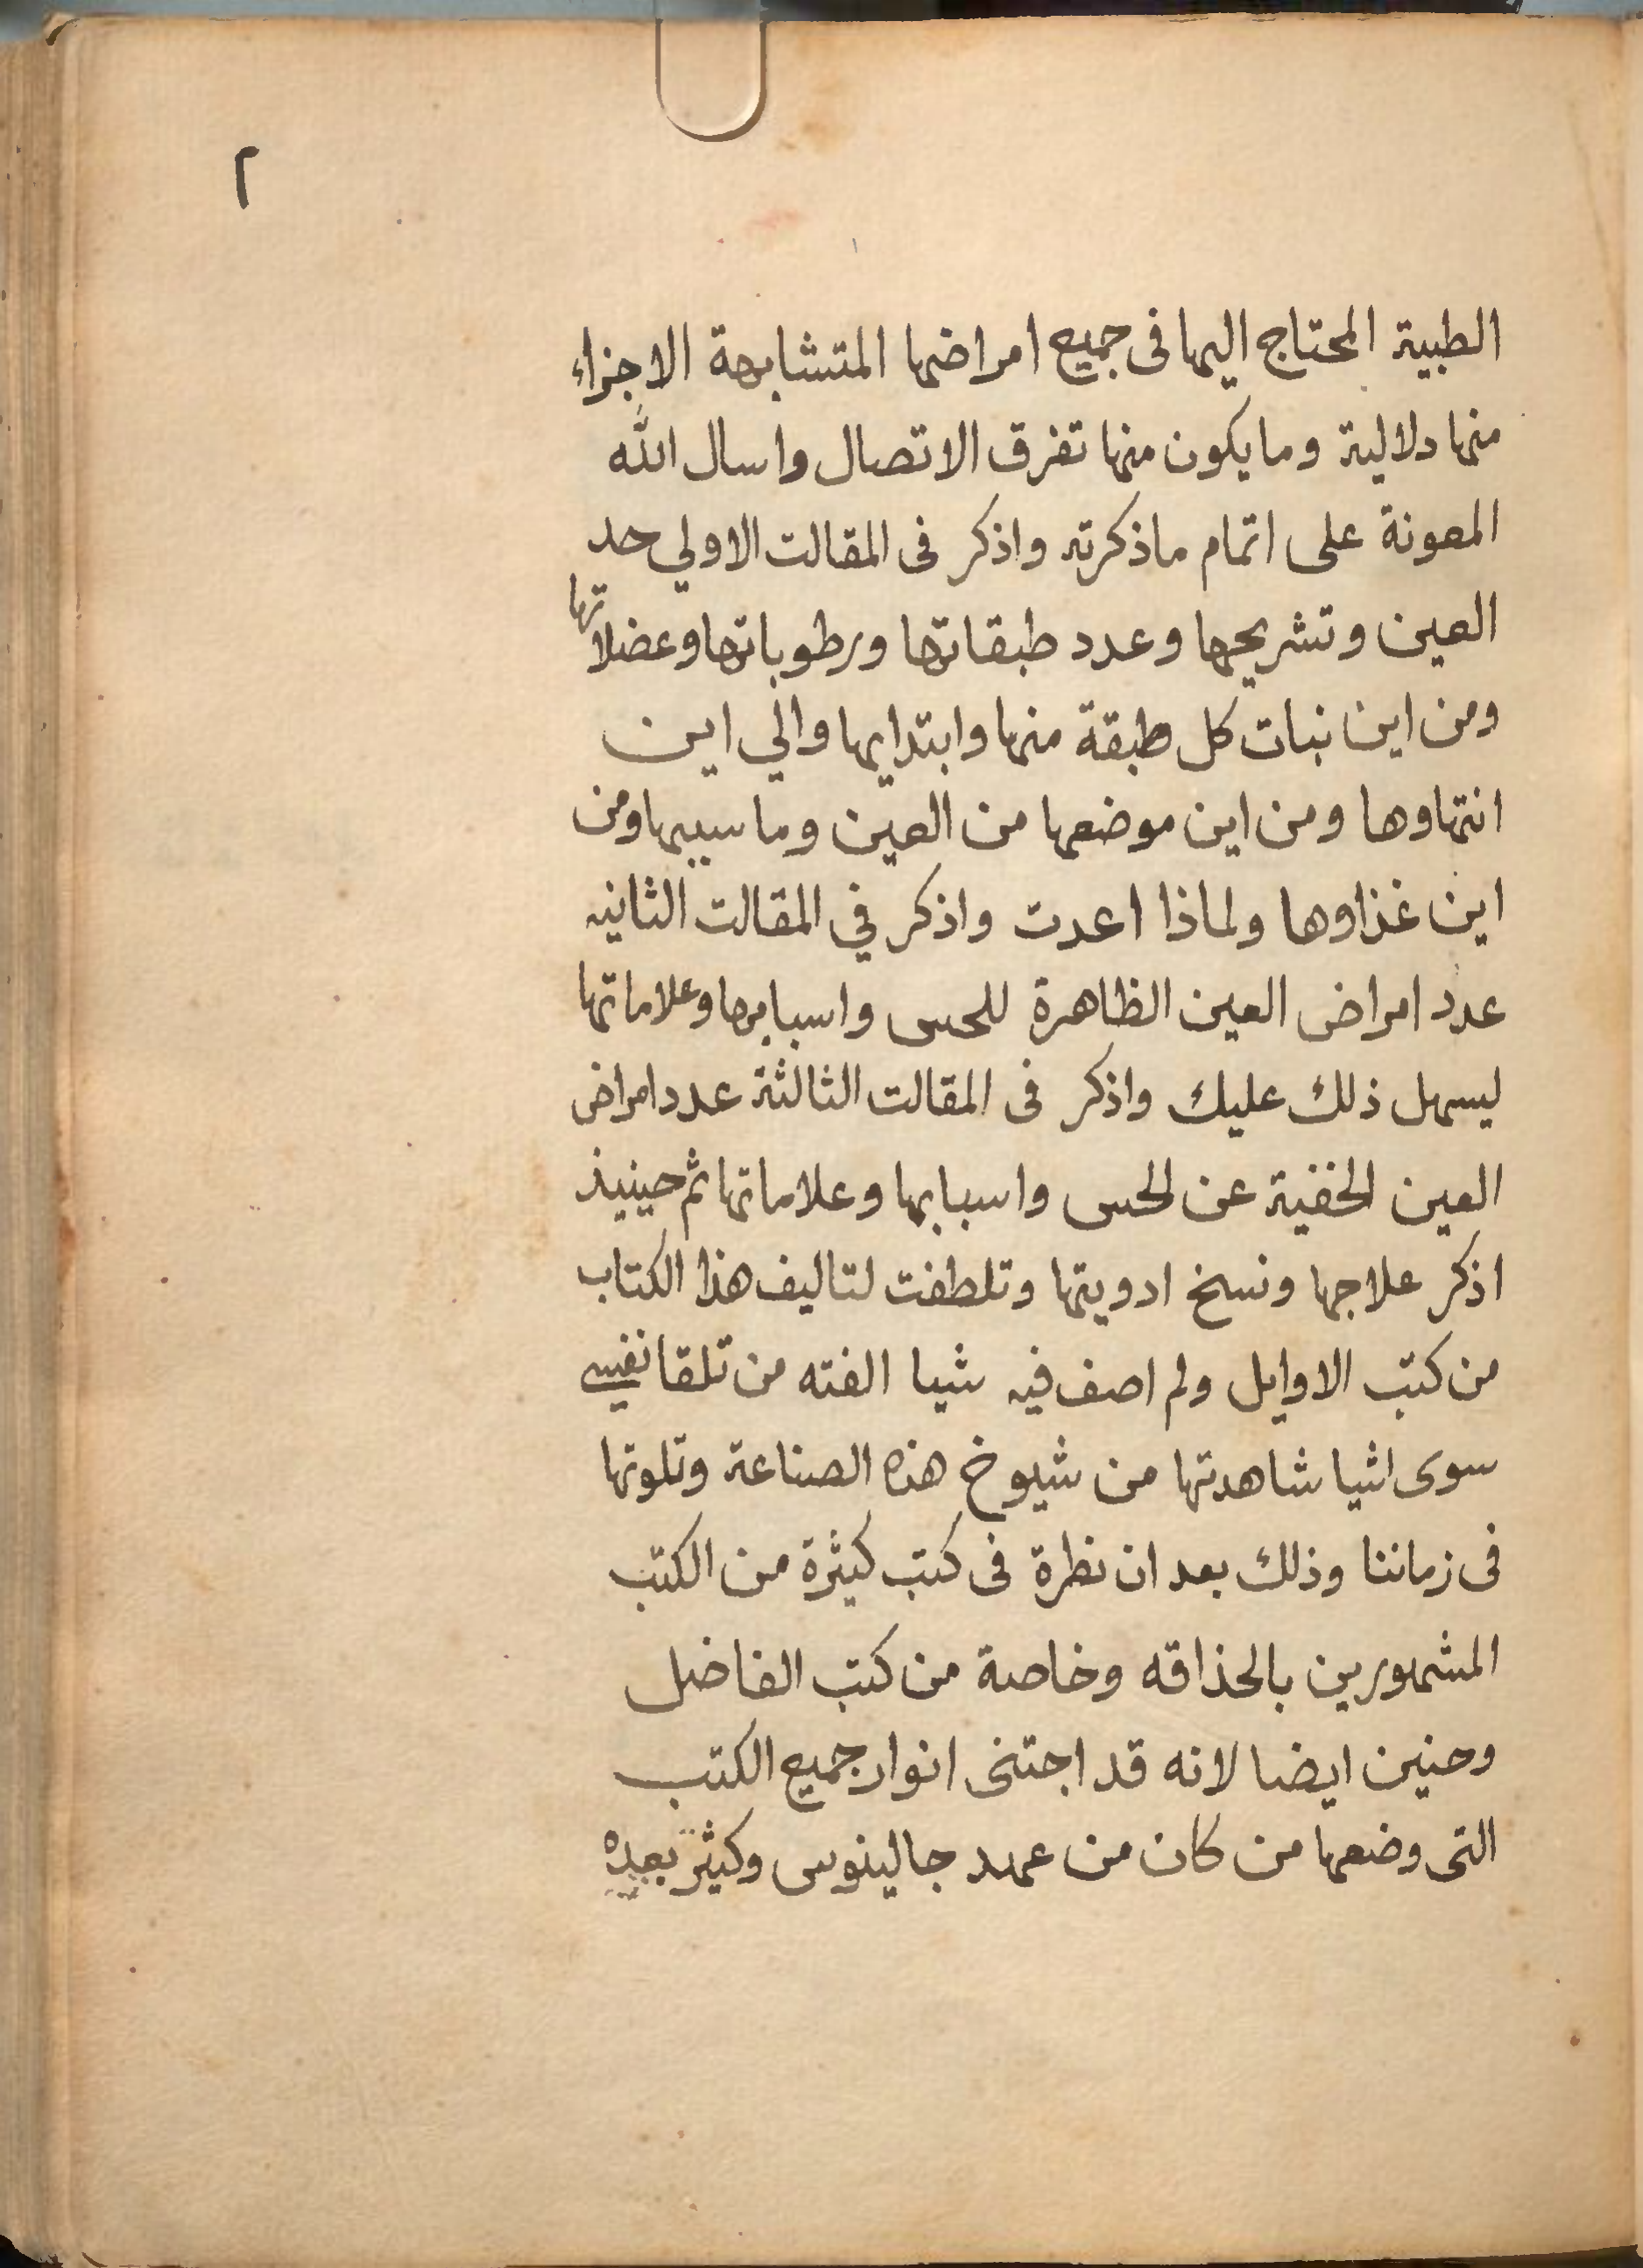 ٢
الطبية المحتاج اليها فى جميع امراضها المتشابهة الاجزاء
منها دلالية وما يكون منها تفرق الاتصال واسال الله
المعونة على اتمام ماذكرته واذكر فى المقالت الاولي حد
العين وتشريحها وعدد طبقاتها ورطوباتها وعضلاتها
ومن اين نبات كل طبقة منها وابتدايها والي اين
انتهاوها ومن اين موضعها من العين وما سببها ومن
اين غذاوها ولماذا اعدت واذكر في المقالت الثانيه
عدد امراض العين الظاهرة للحس واسبابها وعلاماتها
ليسهل ذلك عليك واذكر فى المقالت الثالثة عدد امراض
العين الخفية عن الحس واسبابها وعلاماتها ثم حينيذ
اذكر علاجها ونسخ ادويتها وتلطفت لتاليف هذا الكتاب
من كتب الاوايل ولم اصف فيه شيا الفته من تلقا نفسي
سوى اشيا شاهدتها من شيوخ هذه الصناعة وتلوتها
فى زماننا وذلك بعد ان نظرة فى كتب كثيرة من الكتب
المشهورين بالحذاقه وخاصة من كتب الفاضل
وحنين ايضا لانه قد اجتنى انوار جميع الكتب
التى وضعها من كان من عهد جالينوس وكثير بعده